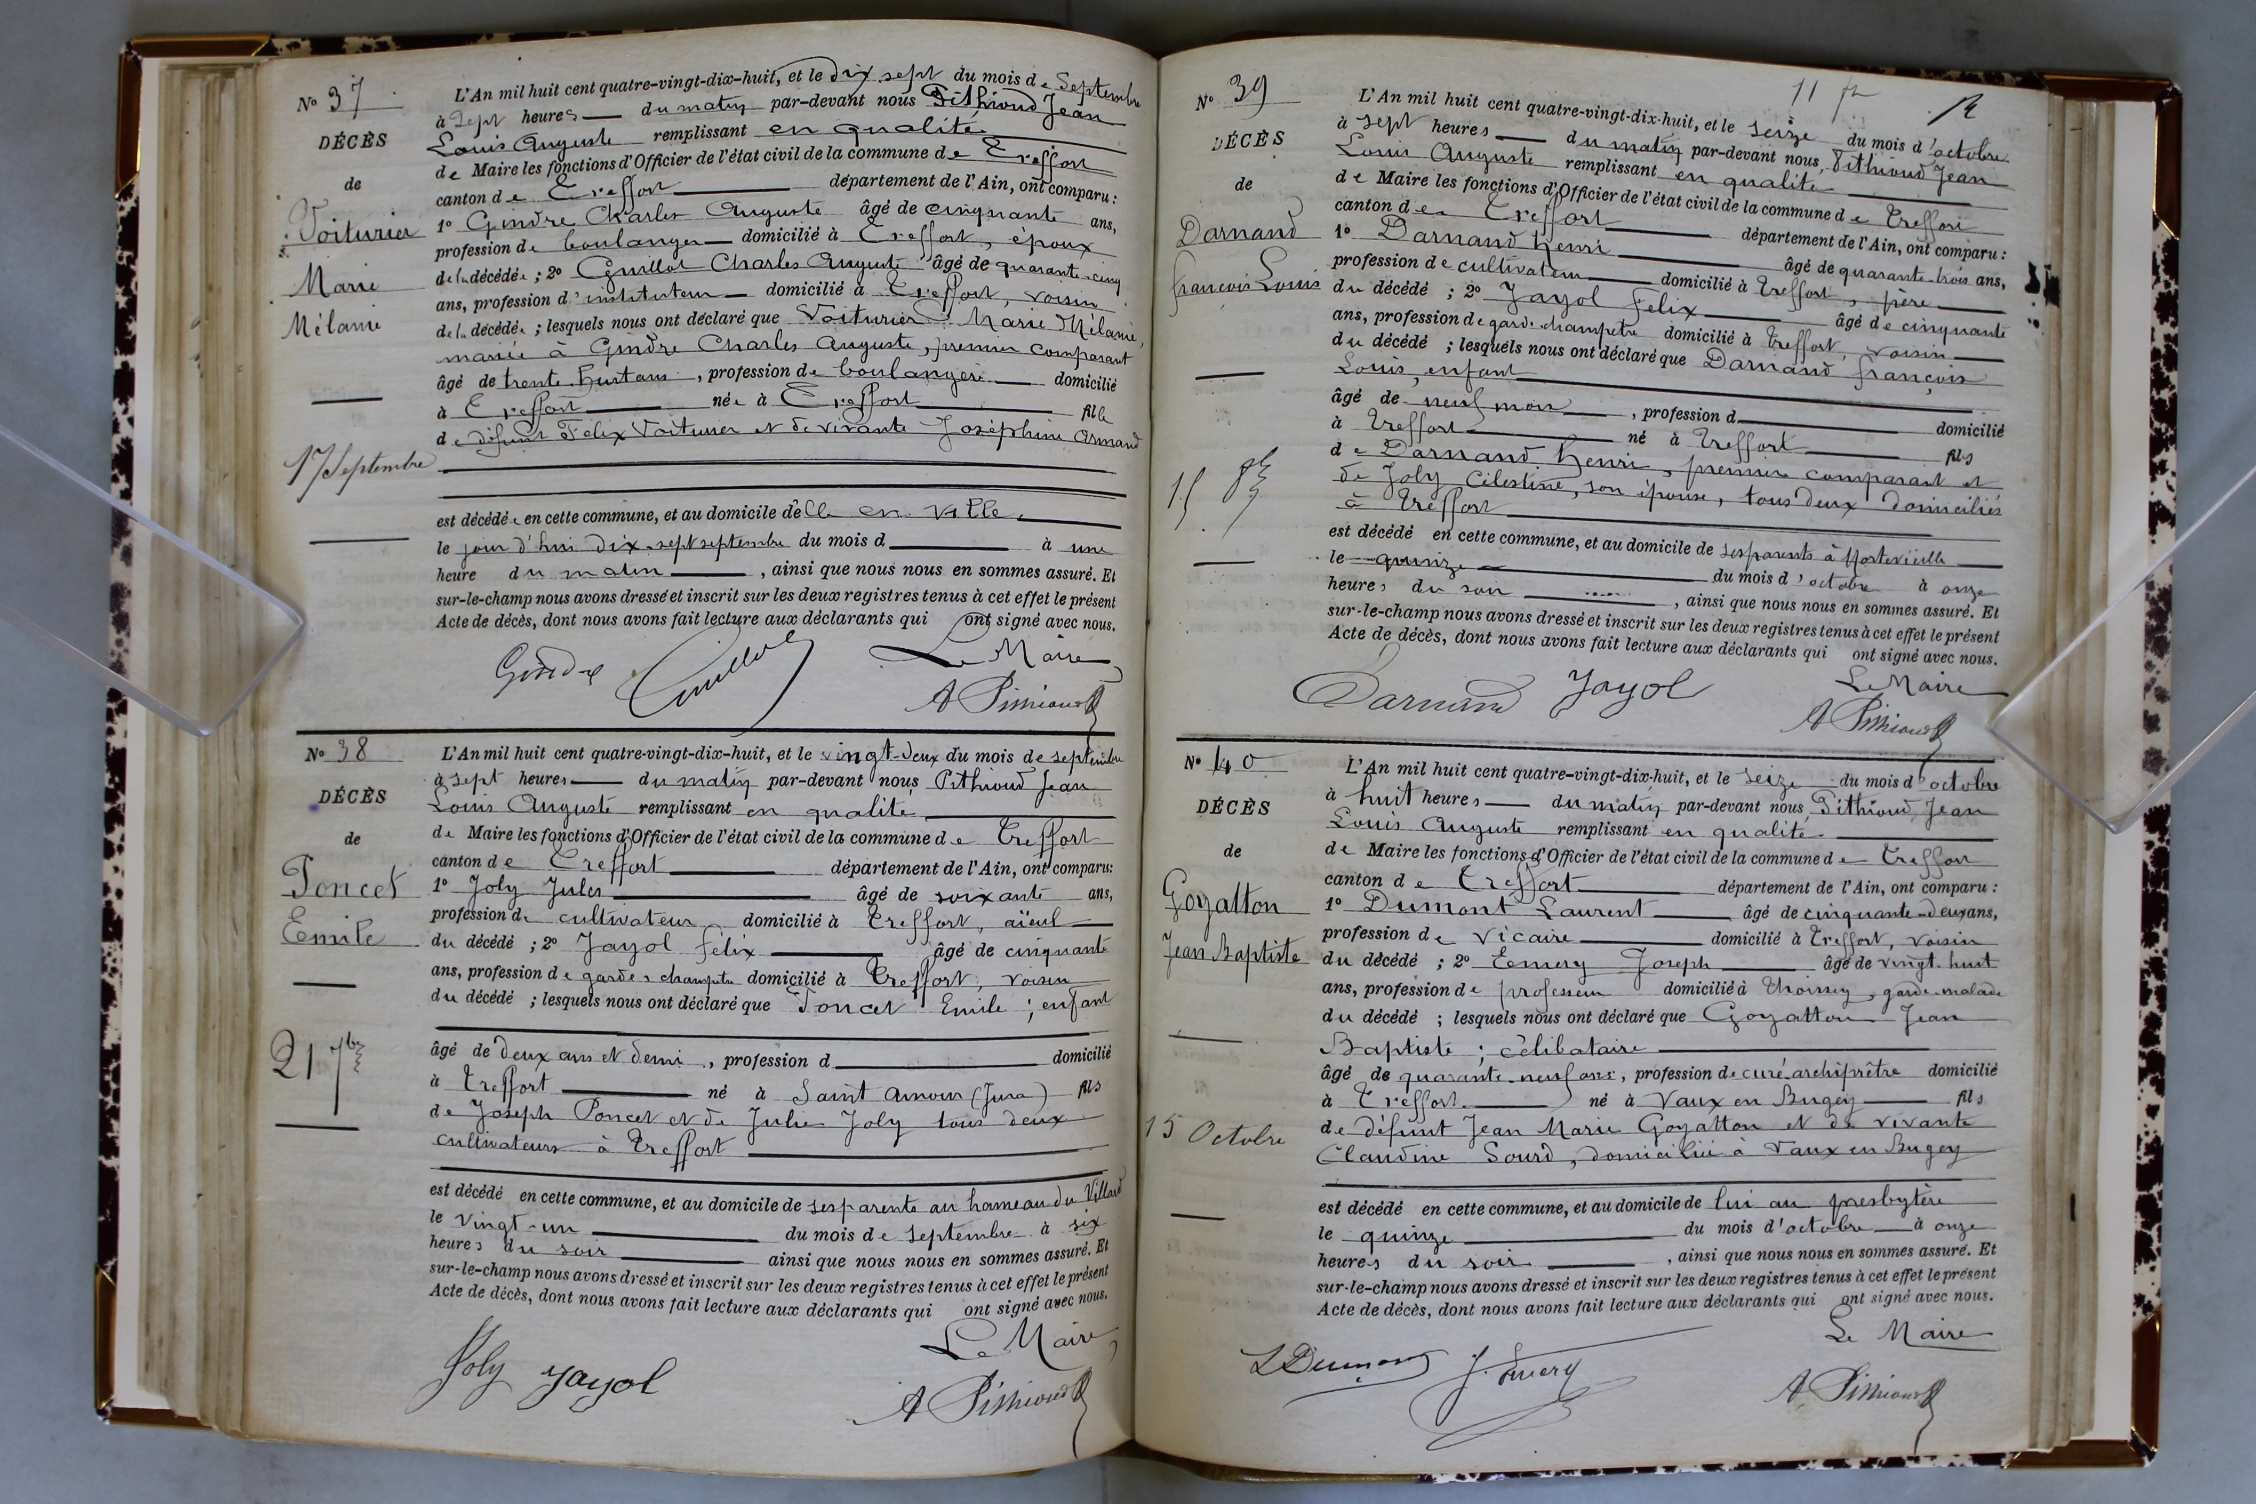 N° 37
DÉCÈS
de
Voiturier
Marie
Mélanie
17 Septembre
L'An mil huit cent quatre-vingt-dix-huit, et le dix sept du mois de Septembre
à Sept heures du matin par-devant nous Pithioud Jean
Louis Auguste remplissant en qualité
de Maire les fonctions d'Officier de l'état civil de la commune de Treffort
canton de Treffort département de l'Ain, ont comparu :
1° Gindre Charles Auguste âgé de cinquante ans,
profession de boulanger domicilié à Treffort, époux
de la décédée ; 2° Guillot Charles Auguste âgé de quarante-cinq
ans, profession d'instituteur domicilié à Treffort, voisin
de la décédée ; lesquels nous ont déclaré que Voiturier Marie Mélanie,
mariée à Gindre Charles Auguste, premier comparant
âgé de trente huit ans, profession de boulangère domicilié
à Treffort née à Treffort fille
de défunt Félix Voiturier et de vivante Joséphine Armand
est décédée en cette commune, et au domicile d'elle en ville
le jour d'hui dix-sept septembre du mois d à une
heure du matin, ainsi que nous nous en sommes assuré. Et
sur-le-champ nous avons dressé et inscrit sur les deux registres tenus à cet effet le présent
Acte de décès, dont nous avons fait lecture aux déclarants qui ont signé avec nous.
Gindre Guillot Le Maire
A Pithioud
N° 38
DÉCÈS
de
Poncet
Emile
21 7bre
L'An mil huit cent quatre-vingt-dix-huit, et le vingt-deux du mois de septembre
à sept heures du matin par-devant nous Pithioud Jean
Louis Auguste remplissant en qualité
de Maire les fonctions d'Officier de l'état civil de la commune de Treffort
canton de Treffort département de l'Ain, ont comparu :
1° Joly Jules âgé de soixante ans,
profession de cultivateur domicilié à Treffort, aïeul
du décédé ; 2° Jayol Félix âgé de cinquante
ans, profession de gardes champêtre domicilié à Treffort, voisin
du décédé ; lesquels nous ont déclaré que Poncet Emile ; enfant
âgé de deux ans et demi, profession d domicilié
à Treffort né à Saint Amour (Jura) fils
de Joseph Poncet et de Julie Joly tous deux
cultivateurs à Treffort
est décédé en cette commune, et au domicile de ses parents au hameau du Villard
le vingt-un du mois de septembre à six
heures du soir ainsi que nous nous en sommes assuré. Et
sur-le-champ nous avons dressé et inscrit sur les deux registres tenus à cet effet le présent
Acte de décès, dont nous avons fait lecture aux déclarants qui ont signé avec nous.
Joly Jayol Le Maire
A Pithioud
N° 39
DÉCÈS
de
Darnand
françois Louis
15 8bre
L'An mil huit cent quatre-vingt-dix-huit, et le seize du mois d'octobre
à sept heures du matin par-devant nous Pithioud Jean
Louis Auguste remplissant en qualité
de Maire les fonctions d'Officier de l'état civil de la commune de Treffort
canton de Treffort département de l'Ain, ont comparu :
1° Darnand henri âgé de quarante-trois ans,
profession de cultivateur domicilié à Treffort, père
du décédé ; 2° Jayol Felix âgé de cinquante
ans, profession de garde champetre domicilié à Treffort, voisin
du décédé ; lesquels nous ont déclaré que Darnand françois
Louis, enfant
âgé de neuf mois, profession d domicilié
à Treffort né à Treffort fils
de Darnand henri, premier comparant et
de Joly Célestine, son épouse, tous deux domiciliés
à Treffort
est décédé en cette commune, et au domicile de ses parents à
le quinze du mois d'octobre à onze
heures du soir, ainsi que nous nous en sommes assuré. Et
sur-le-champ nous avons dressé et inscrit sur les deux registres tenus à cet effet le présent
Acte de décès, dont nous avons fait lecture aux déclarants qui ont signé avec nous.
Darnand Jayol Le Maire
A Pithioud
N° 40
DÉCÈS
de
Goyatton
Jean Baptiste
15 Octobre
L'An mil huit cent quatre-vingt-dix-huit, et le seize du mois d'octobre
à huit heures du matin par-devant nous Pithioud Jean
Louis Auguste remplissant en qualité
de Maire les fonctions d'Officier de l'état civil de la commune de Treffort
canton de Treffort département de l'Ain, ont comparu :
1° Dumont Laurent âgé de cinquante-deux ans,
profession de vicaire domicilié à Treffort, voisin
du décédé ; 2° Eemery Joseph âgé de vingt-huit
ans, profession de professeur domicilié à Thoissey, garde-malade
du décédé ; lesquels nous ont déclaré que Goyatton Jean
Baptiste ; célibataire
âgé de quarante-neuf ans, profession de curé archiprêtre domicilié
à Treffort né à Vaux en Bugey fils
de défunt Jean Marie Goyatton et de vivante
Claudine Sourd, domiciliée à Vaux en Bugey
est décédé en cette commune, et au domicile de lui au presbytère
le quinze du mois d'octobre à onze
heures du soir, ainsi que nous nous en sommes assuré. Et
sur-le-champ nous avons dressé et inscrit sur les deux registres tenus à cet effet le présent
Acte de décès, dont nous avons fait lecture aux déclarants qui ont signé avec nous.
L Dumont J. Emery Le Maire
A Pithioud